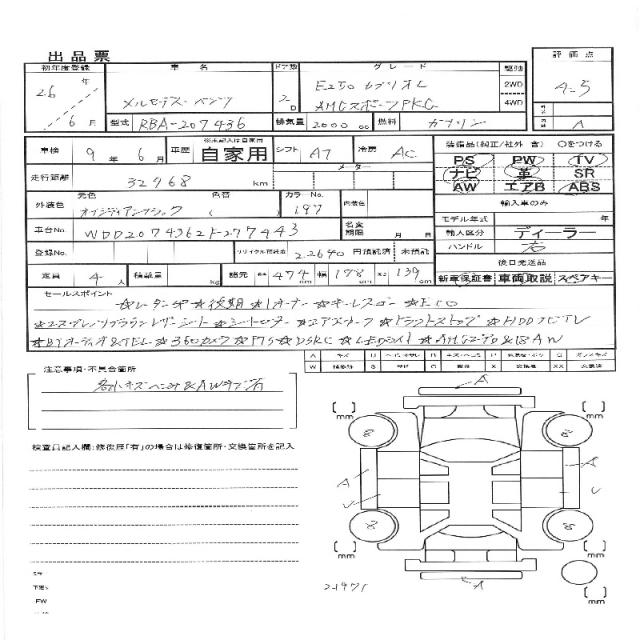 出品票
初年度登録 車名 ドア数 グレード 駆動 評価点
26年 6月 メルセデス・ベンツ 2D E250 カブリオレ AMGスポーツPKG 2WD 4WD 4-5 A
型式 RBA-207436 排気量 2000 cc 燃料 ガソリン
車検 9年6月 車歴 ※未記入は自家用 自家用 シフト A7 冷房 AC 装備品(純正/社外 含) ○をつける
走行距離 32968 km メーター PS PW TV
ナビ 革 SR
AW エアB ABS
外装色 元色 オブシディアンブラック 色替 ( ) カラーNo. 197 内装色 輸入車のみ
モデル年式 年
車台No. WDD2074362F277443 名変期限 月 日 輸入区分 ディーラー
ハンドル 右
登録No. リサイクル預託金 22690 円預託済 未預託 後日発送品
定員 4人 積載量 kg 諸元 長さ 471cm 幅 178cm 高 139cm 新車保証書 車両取説 スペアキー
セールスポイント
★レーダーSP ★後期 ★1オーナー ★キーレスゴー ★ECO
★エスプレッソブラウンレザーシート ★シートヒーター ★エアスカーフ ★ドラフトストップ ★HDDナビTV
★BTオーディオ&TEL ★360カメラ ★PTS ★DSRC ★LEDライト ★AMGエアロ&18AW
注意事項・不具合箇所
各小キズヘコミ&AWキズ有
検査員記入欄:修復歴「有」の場合は修復箇所・交換箇所を記入
A
[ ] mm [ ] mm
8 8
A A
U U
8 8
[ ] mm [ ] mm
A
21971
[ ] mm